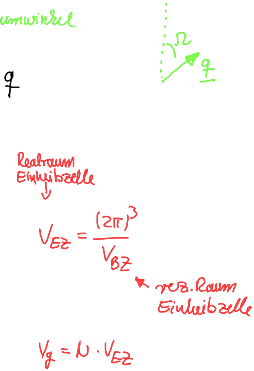 umwinkel
Ω
q
q
Realraum
Einheitszelle
V_EZ = (2π)^3 / V_BZ
rez. Raum
Einheitszelle
V_g = N · V_EZ